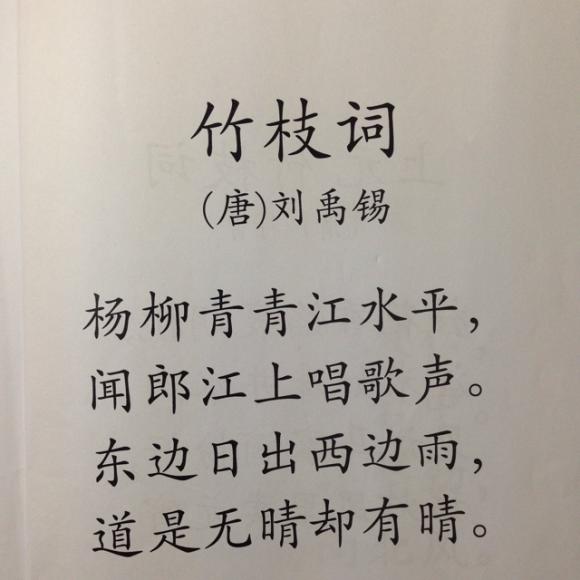 竹枝词
(唐)刘禹锡
杨柳青青江水平，
闻郎江上唱歌声。
东边日出西边雨，
道是无晴却有晴。